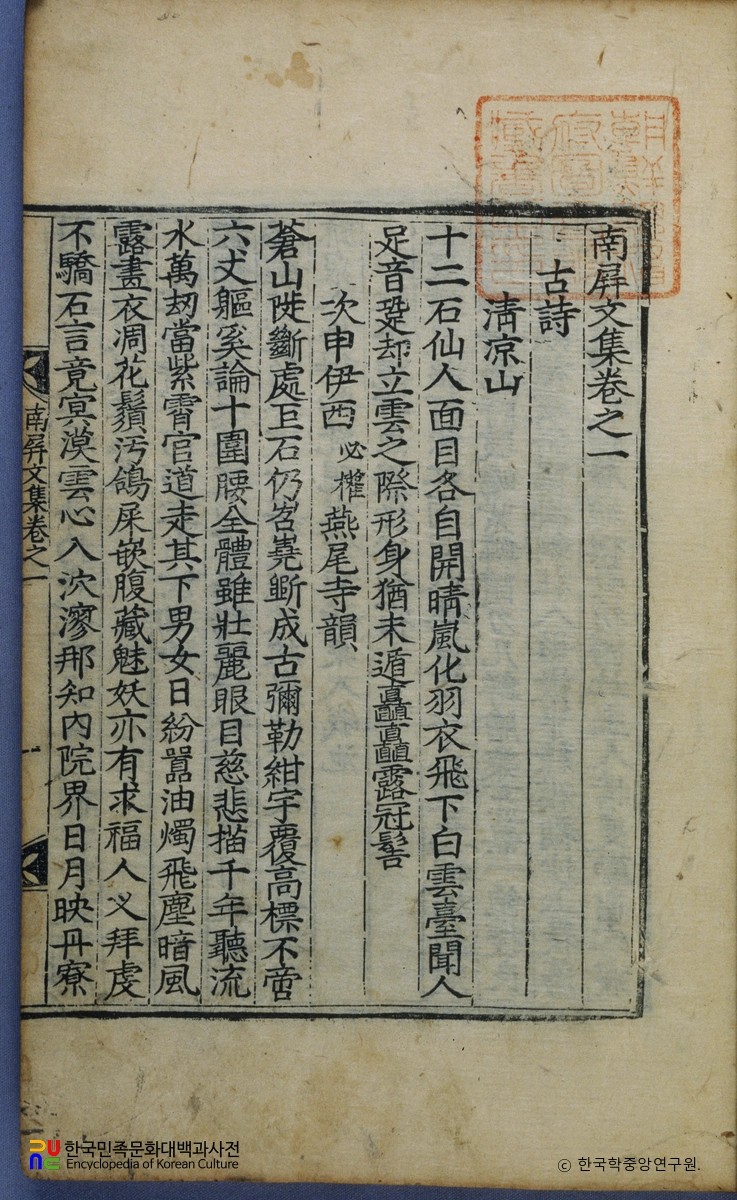 南屛文集卷之一
古詩
淸凉山
十二石仙人面目各自開晴嵐化羽衣飛下白雲臺聞人
足音跫却立雲之際形身猶未遁矗矗露冠髻
次申伊西必權燕尾寺韻
蒼山嵷斷處巨石仍岧嶤斲成古彌勒紺宇覆高標不啻
六丈軀奚論十圍腰全體雖壯麗眼目慈悲描千年聽流
水萬刼當紫霄官道走其下男女日紛囂油燭飛塵暗風
露畫衣凋花鬚汚鴿屎嵌腹藏魅妖亦有求福人义拜虔
不驕石言竟冥漠雲心入泬漻那知內院界日月映丹寮
南屛文集卷之一
一
한국민족문화대백과사전
Encyclopedia of Korean Culture
ⓒ 한국학중앙연구원.